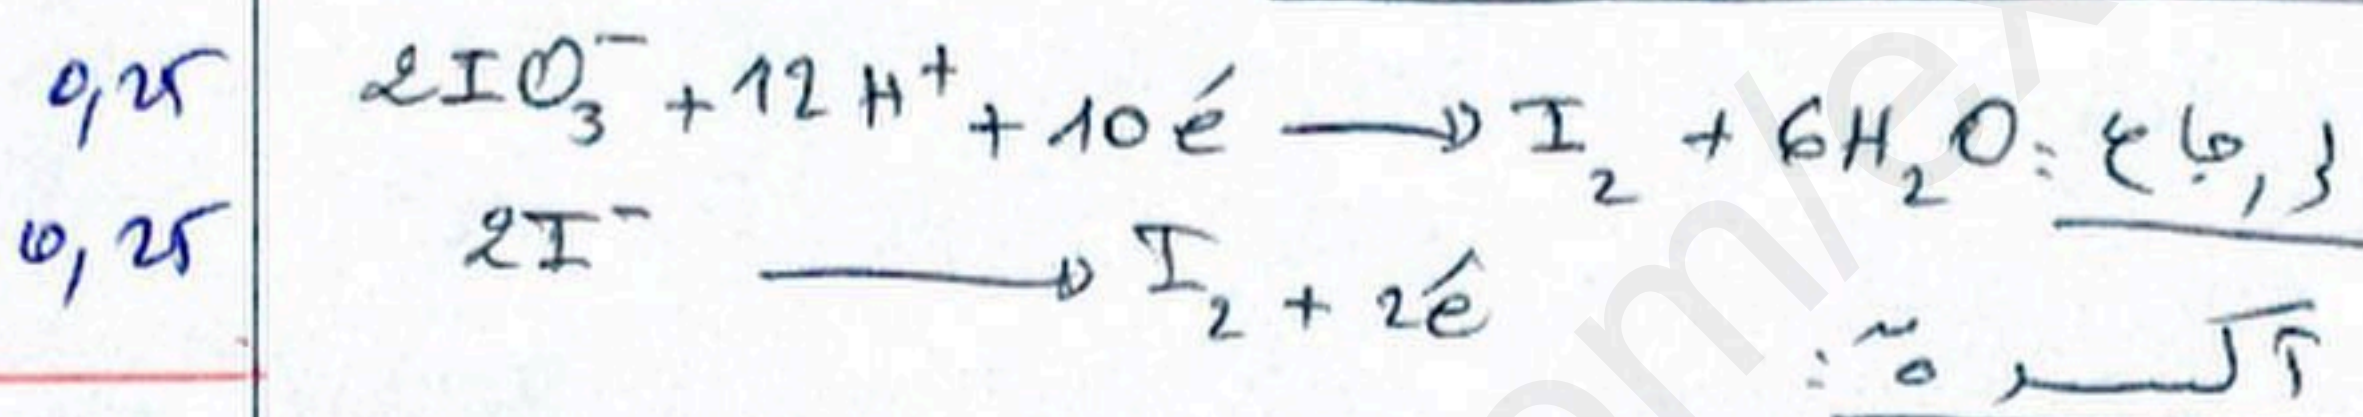 0,25 2IO₃⁻ + 12H⁺ + 10é → I₂ + 6H₂O : إرجاع
0,25 2I⁻ → I₂ + 2é
أكسدة :
om/ex